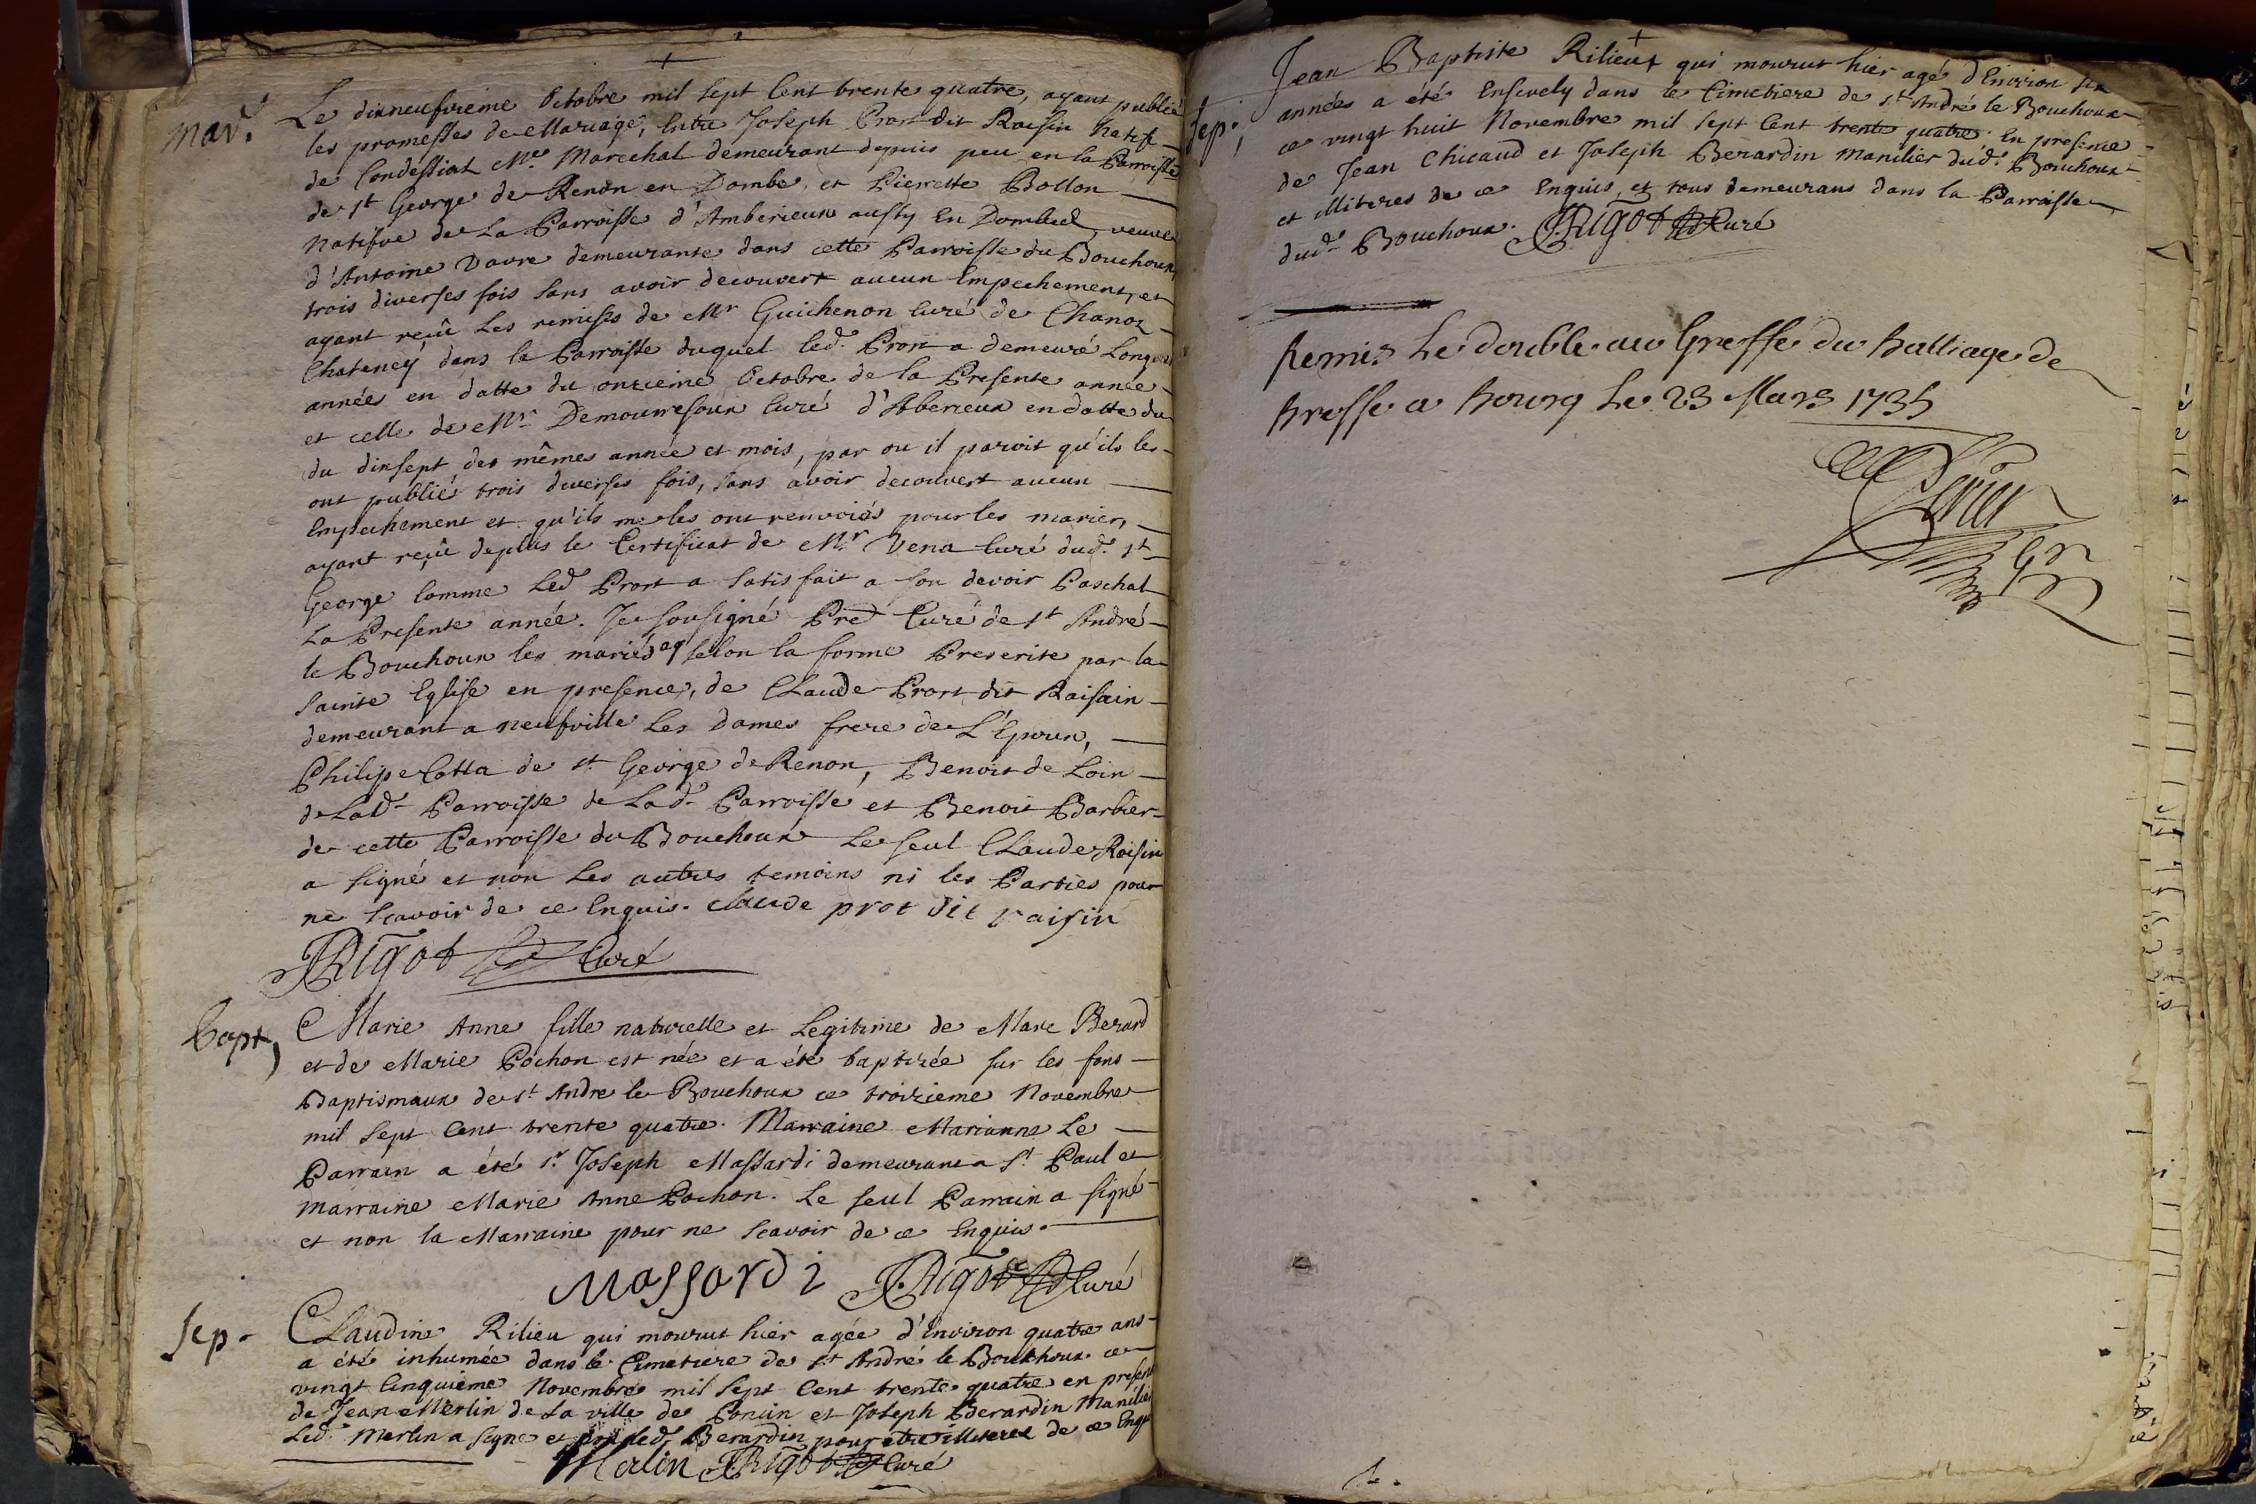 mar.
Le dixneufvieme Octobre mil sept Cent trente quatre, ayant publié
les promesses de Mariage, Entre Joseph Pron dit Raisin natif
de Condessiat Me Marechal demeurant depuis peu en la Parroisse
de St George de Renon en Dombe, et Pierrette Bollon
natifve de La Parroisse d'Amberieux aussy En Dombe, veuve
d'Antoine Davre demeurante dans cette Parroisse du Bouchoux
trois diverses fois sans avoir decouvert aucun Empechement, et
ayant reçû Les remises de Mr Guichenon Curé de Chanoz
Chateney dans la Parroisse duquel led. Pron a demeuré Longues
années en datte du onzieme Octobre de la Presente année
et celle de Mr Curé d'Aberieux en datte du
du dixsept des mêmes année et mois, par ou il paroit qu'ils les
ont publiés trois diverses fois, sans avoir decouvert aucun
Empechement et qu'ils me les ont renvoiés pour les marier,
ayant reçû deplus le Certificat de Mr Vena Curé dud. St
George Comme Led Pron a satisfait a son devoir Paschal
La Presente année. Je soussigné Pre Curé de St André
le Bouchoux les mariés selon la forme Prescrite par la
Sainte Eglise en presence, de Claude Pron dit Raisain
demeurant a neufville Les Dames frere de L'Epoux,
Philipe Cotta de St George de Renon, Benoit de Loin
de Lad. Parroisse de Lad. Parroisse et Benoit Barbier
de cette Parroisse du Bouchoux Le seul Claude Raisin
a signé et non Les autres temoins ni les Parties pour
ne scavoir de ce Enquis. claude prot dit raisin
JRigot Pre Curé
bapt,
Marie Anne fille naturelle et Legitime de Marc Berard
et de Marie Pochon est née et a été baptizée sur les fons
Baptismaux de St Andre le Bouchoux ce troizieme Novembre
mil sept Cent trente quatre. Marraine Marianne Le
Parrain a été Sr Joseph Massardi demeurant a St Paul et
marraine Marie Anne Pochon. Le seul Parrain a signé
et non la Marraine pour ne scavoir de ce Enquis.
Massardi JRigot Pre Curé
sep.
Claudine Rilieu qui mourut hier agée d'Environ quatre ans
a été inhumée dans le Cimetiere de St André le Bouchoux ce
vingt Cinquieme Novembre mil sept Cent trente quatre en presence
de Jean Merlin de La ville de Poncin et Joseph Berardin Manilier
Led. Merlin a signé et led. Berardin pour etre illiteré de ce Enquis
Merlin JRigot Pre Curé
sep.
Jean Baptiste Rilieux qui mourut hier agé d'Environ six
années a été Ensevely dans le Cimetiere de St André le Bouchoux
ce vingt huit Novembre mil sept Cent trente quatre En presence
de Jean Chicaud et Joseph Berardin manilier dud. Bouchoux
et illiteres de ce Enquis, et tous demeurans dans la Parroisse
dud. Bouchoux. JRigot Pre Curé
Remis Le double au Greffe du Balliage de
Bresse a Bourg Le 23 Mars 1735